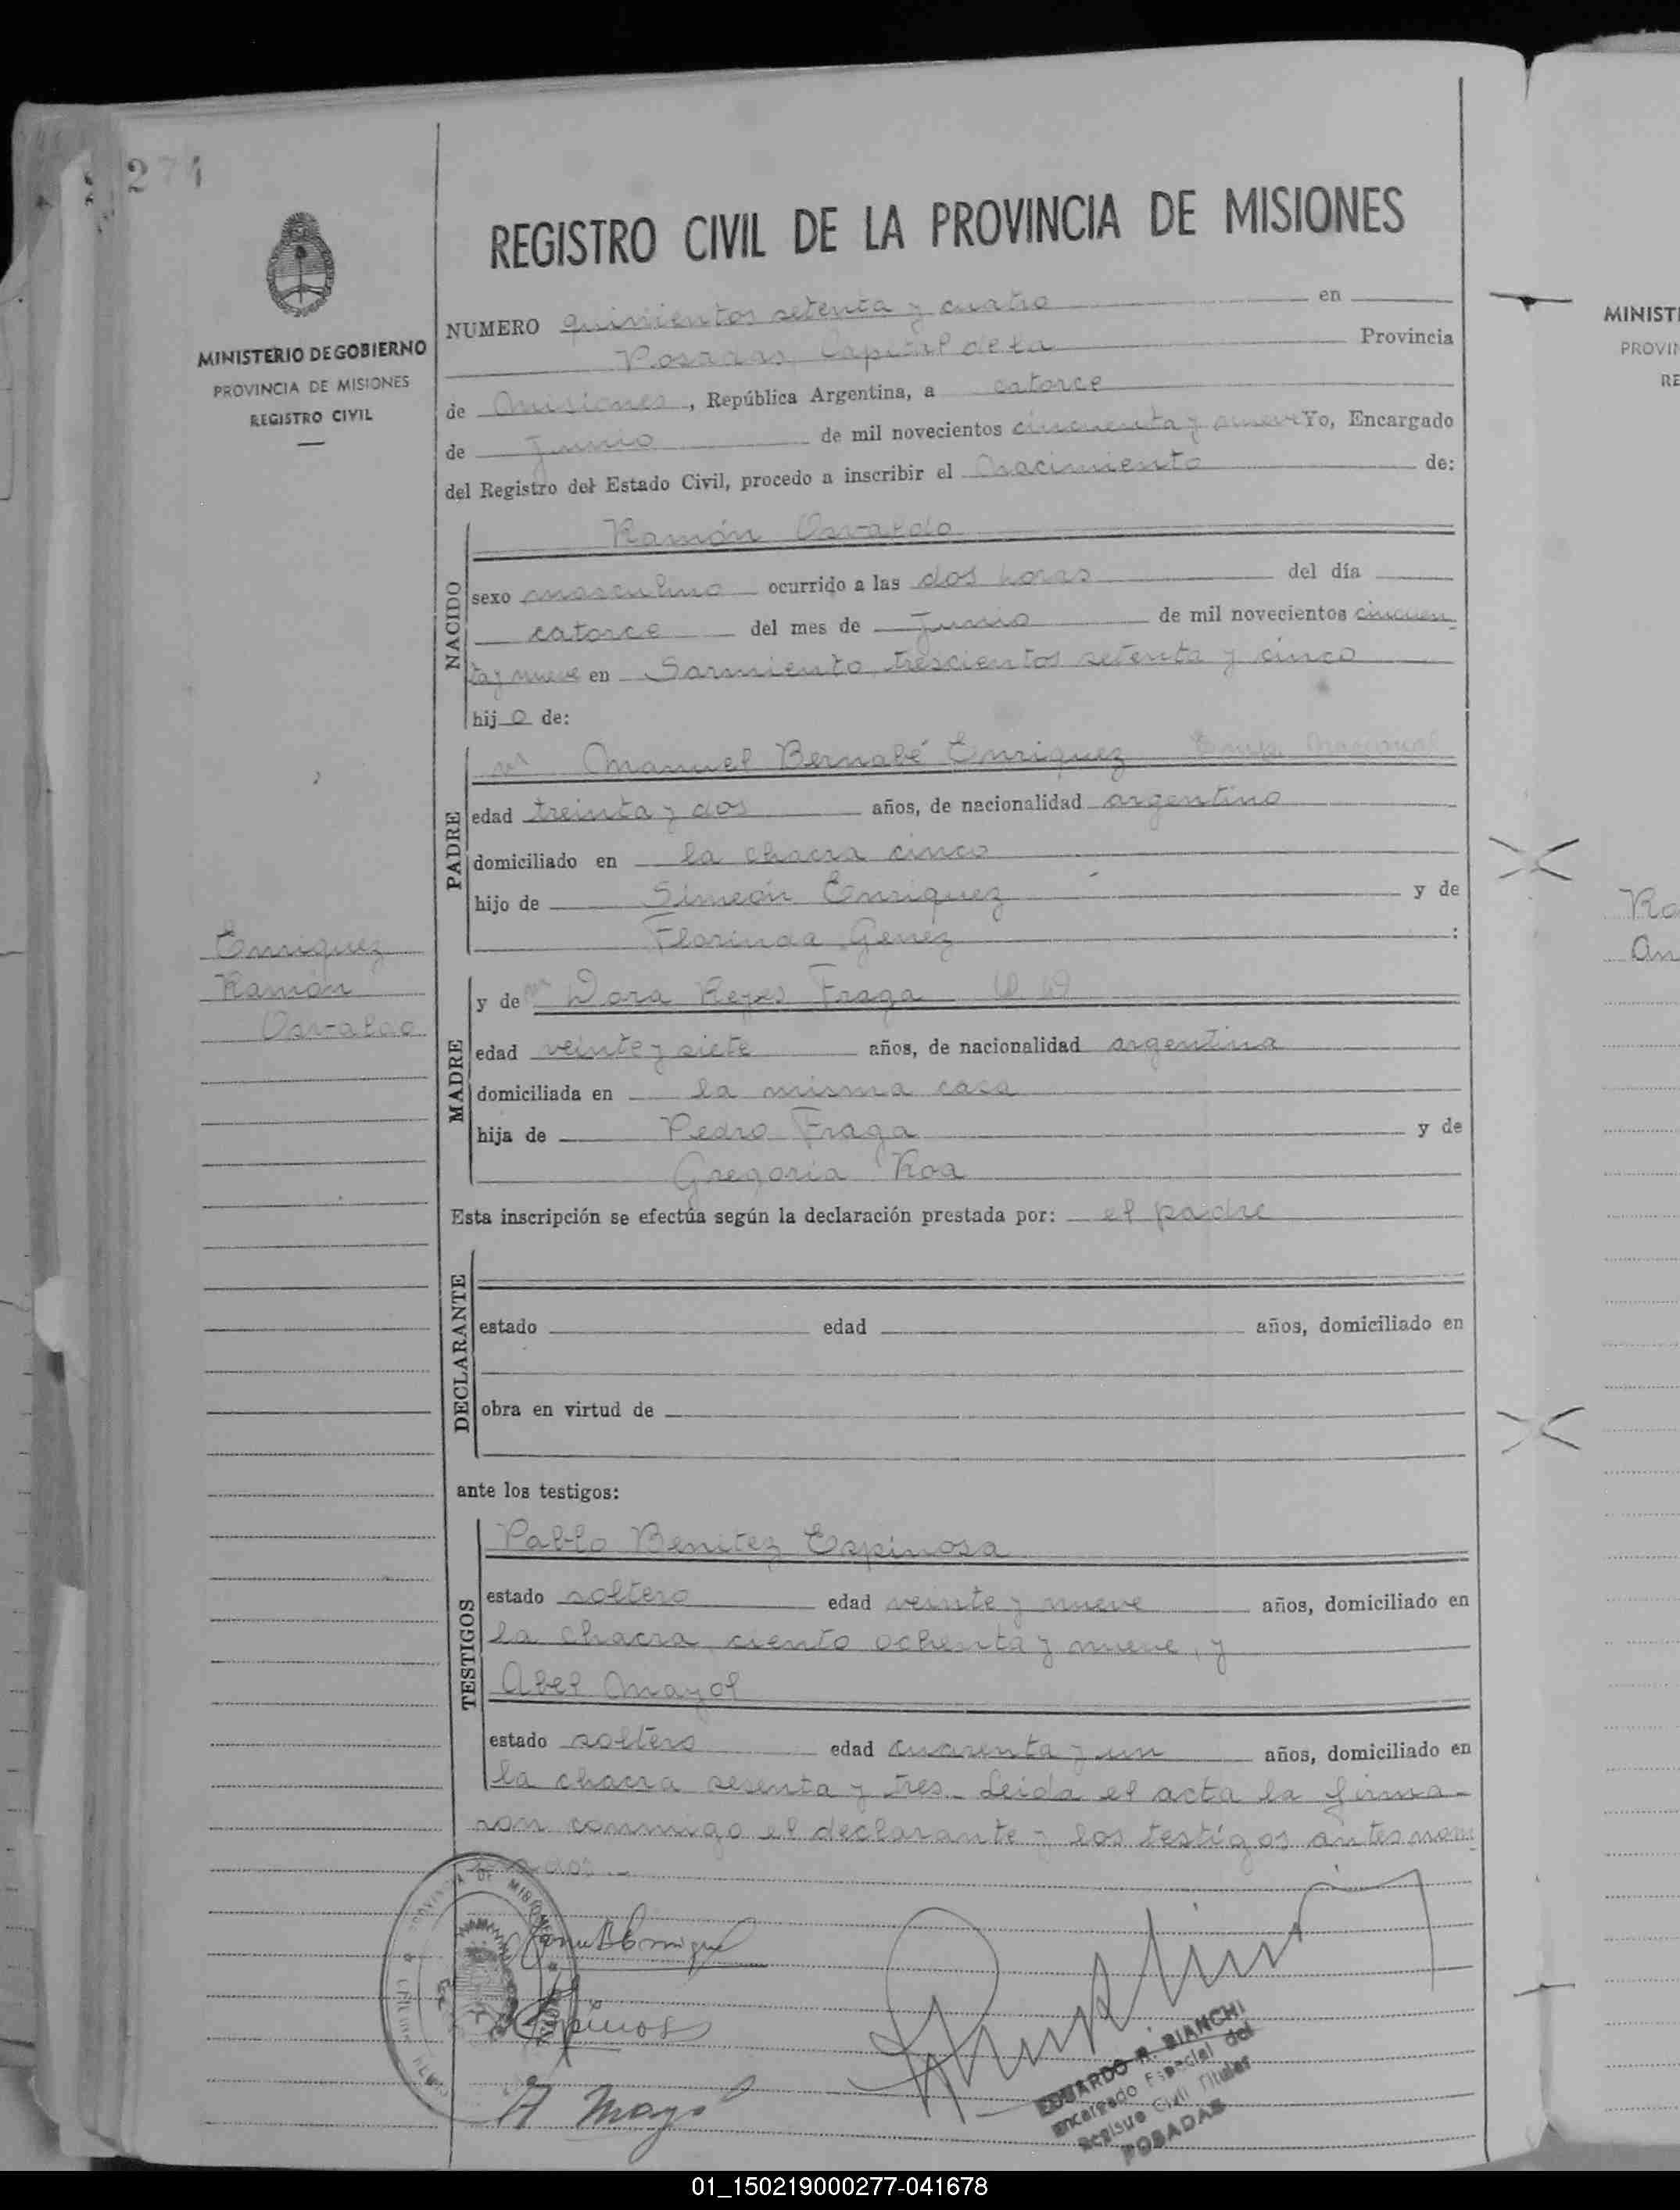 274
REGISTRO CIVIL DE LA PROVINCIA DE MISIONES
MINISTERIO DE GOBIERNO
PROVINCIA DE MISIONES
REGISTRO CIVIL
NUMERO quinientos setenta y cuatro en
Posadas, Capital de la Provincia
de Misiones, República Argentina, a catorce
de Junio de mil novecientos cincuenta y nueve Yo, Encargado
del Registro del Estado Civil, procedo a inscribir el Nacimiento de:
NACIDO
Ramón Osvaldo
sexo masculino ocurrido a las dos horas del día
catorce del mes de Junio de mil novecientos cincuen
ta y nueve en Sarmiento trescientos setenta y cinco
hijo de:
PADRE
Manuel Bernabé Enriquez
edad treinta y dos años, de nacionalidad argentino
domiciliado en la chacra cinco
hijo de Simeón Enriquez y de
Florinda Genez :
Enriquez
Ramón
Osvaldo
MADRE
y de Dora Reyes Fraga
edad veinte y siete años, de nacionalidad argentina
domiciliada en la misma casa
hija de Pedro Fraga y de
Gregoria Roa
Esta inscripción se efectúa según la declaración prestada por: el padre
DECLARANTE
estado edad años, domiciliado en
obra en virtud de
ante los testigos:
TESTIGOS
Pablo Benitez Espinosa
estado soltero edad veinte y nueve años, domiciliado en
la chacra ciento ochenta y nueve, y
Abel Mayol
estado soltero edad cuarenta y un años, domiciliado en
la chacra sesenta y tres. Leida el acta la firma-
ron conmigo el declarante y los testigos antes nom
brados.-
PROVINCIA DE MISIONES
Espinosa
A Mayol
EDUARDO R. BIANCHI
Encargado Especial del
Registro Civil Titular
POSADAS
MINIST
PROVIN
RE
01_150219000277-041678